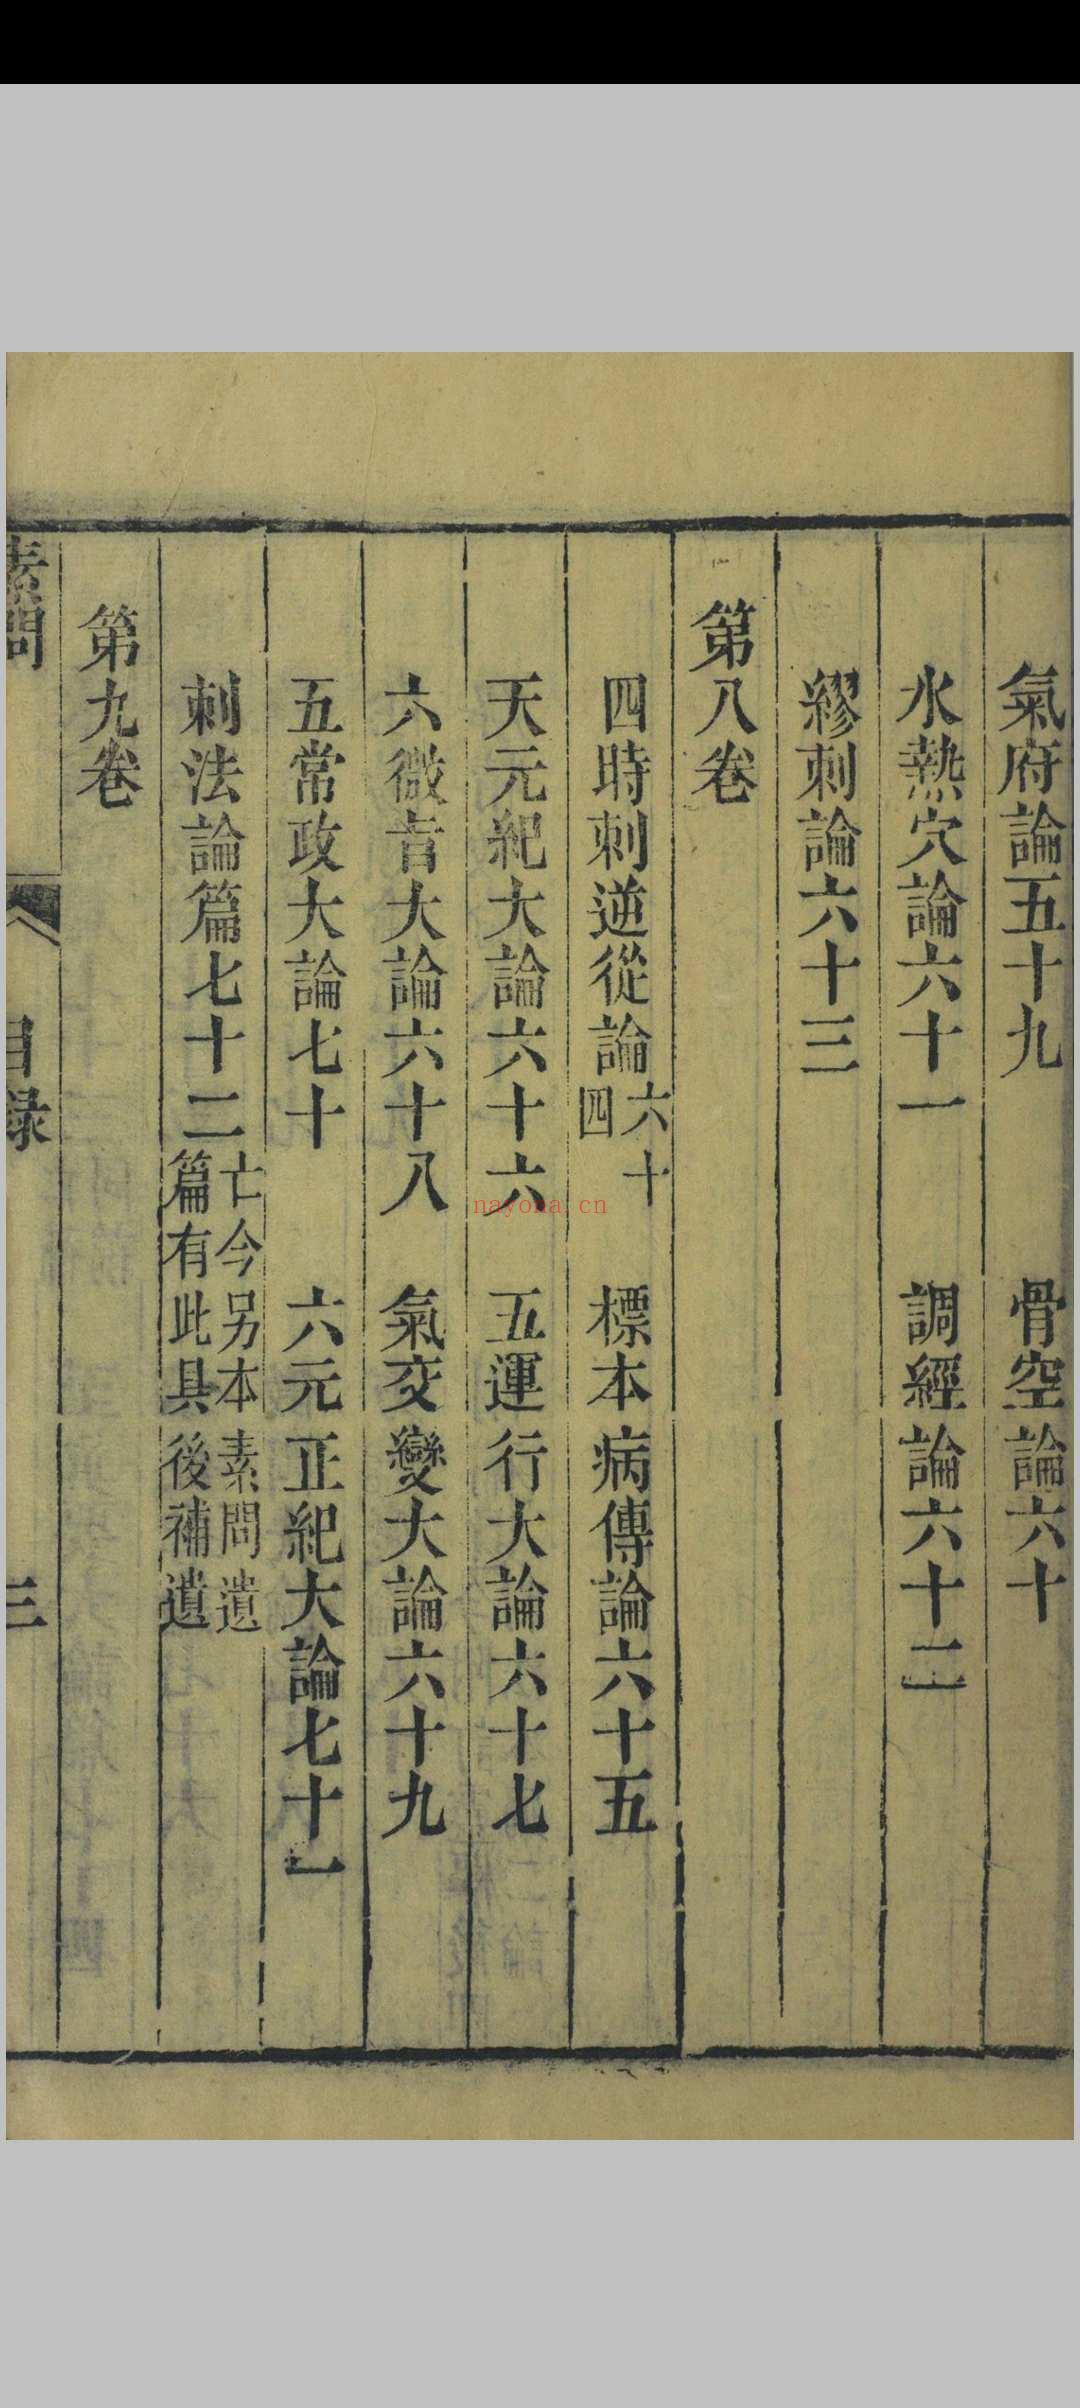 氣府論五十九　骨空論六十
水熱穴論六十一　調經論六十二
繆刺論六十三
第八卷
四時刺逆從論六十四　標本病傳論六十五
天元紀大論六十六　五運行大論六十七
六微旨大論六十八　氣交變大論六十九
五常政大論七十　六元正紀大論七十一
刺法論篇七十二亡今另本素問遺
篇有此具後補遺
第九卷
素問　目録　三
nayona.cn